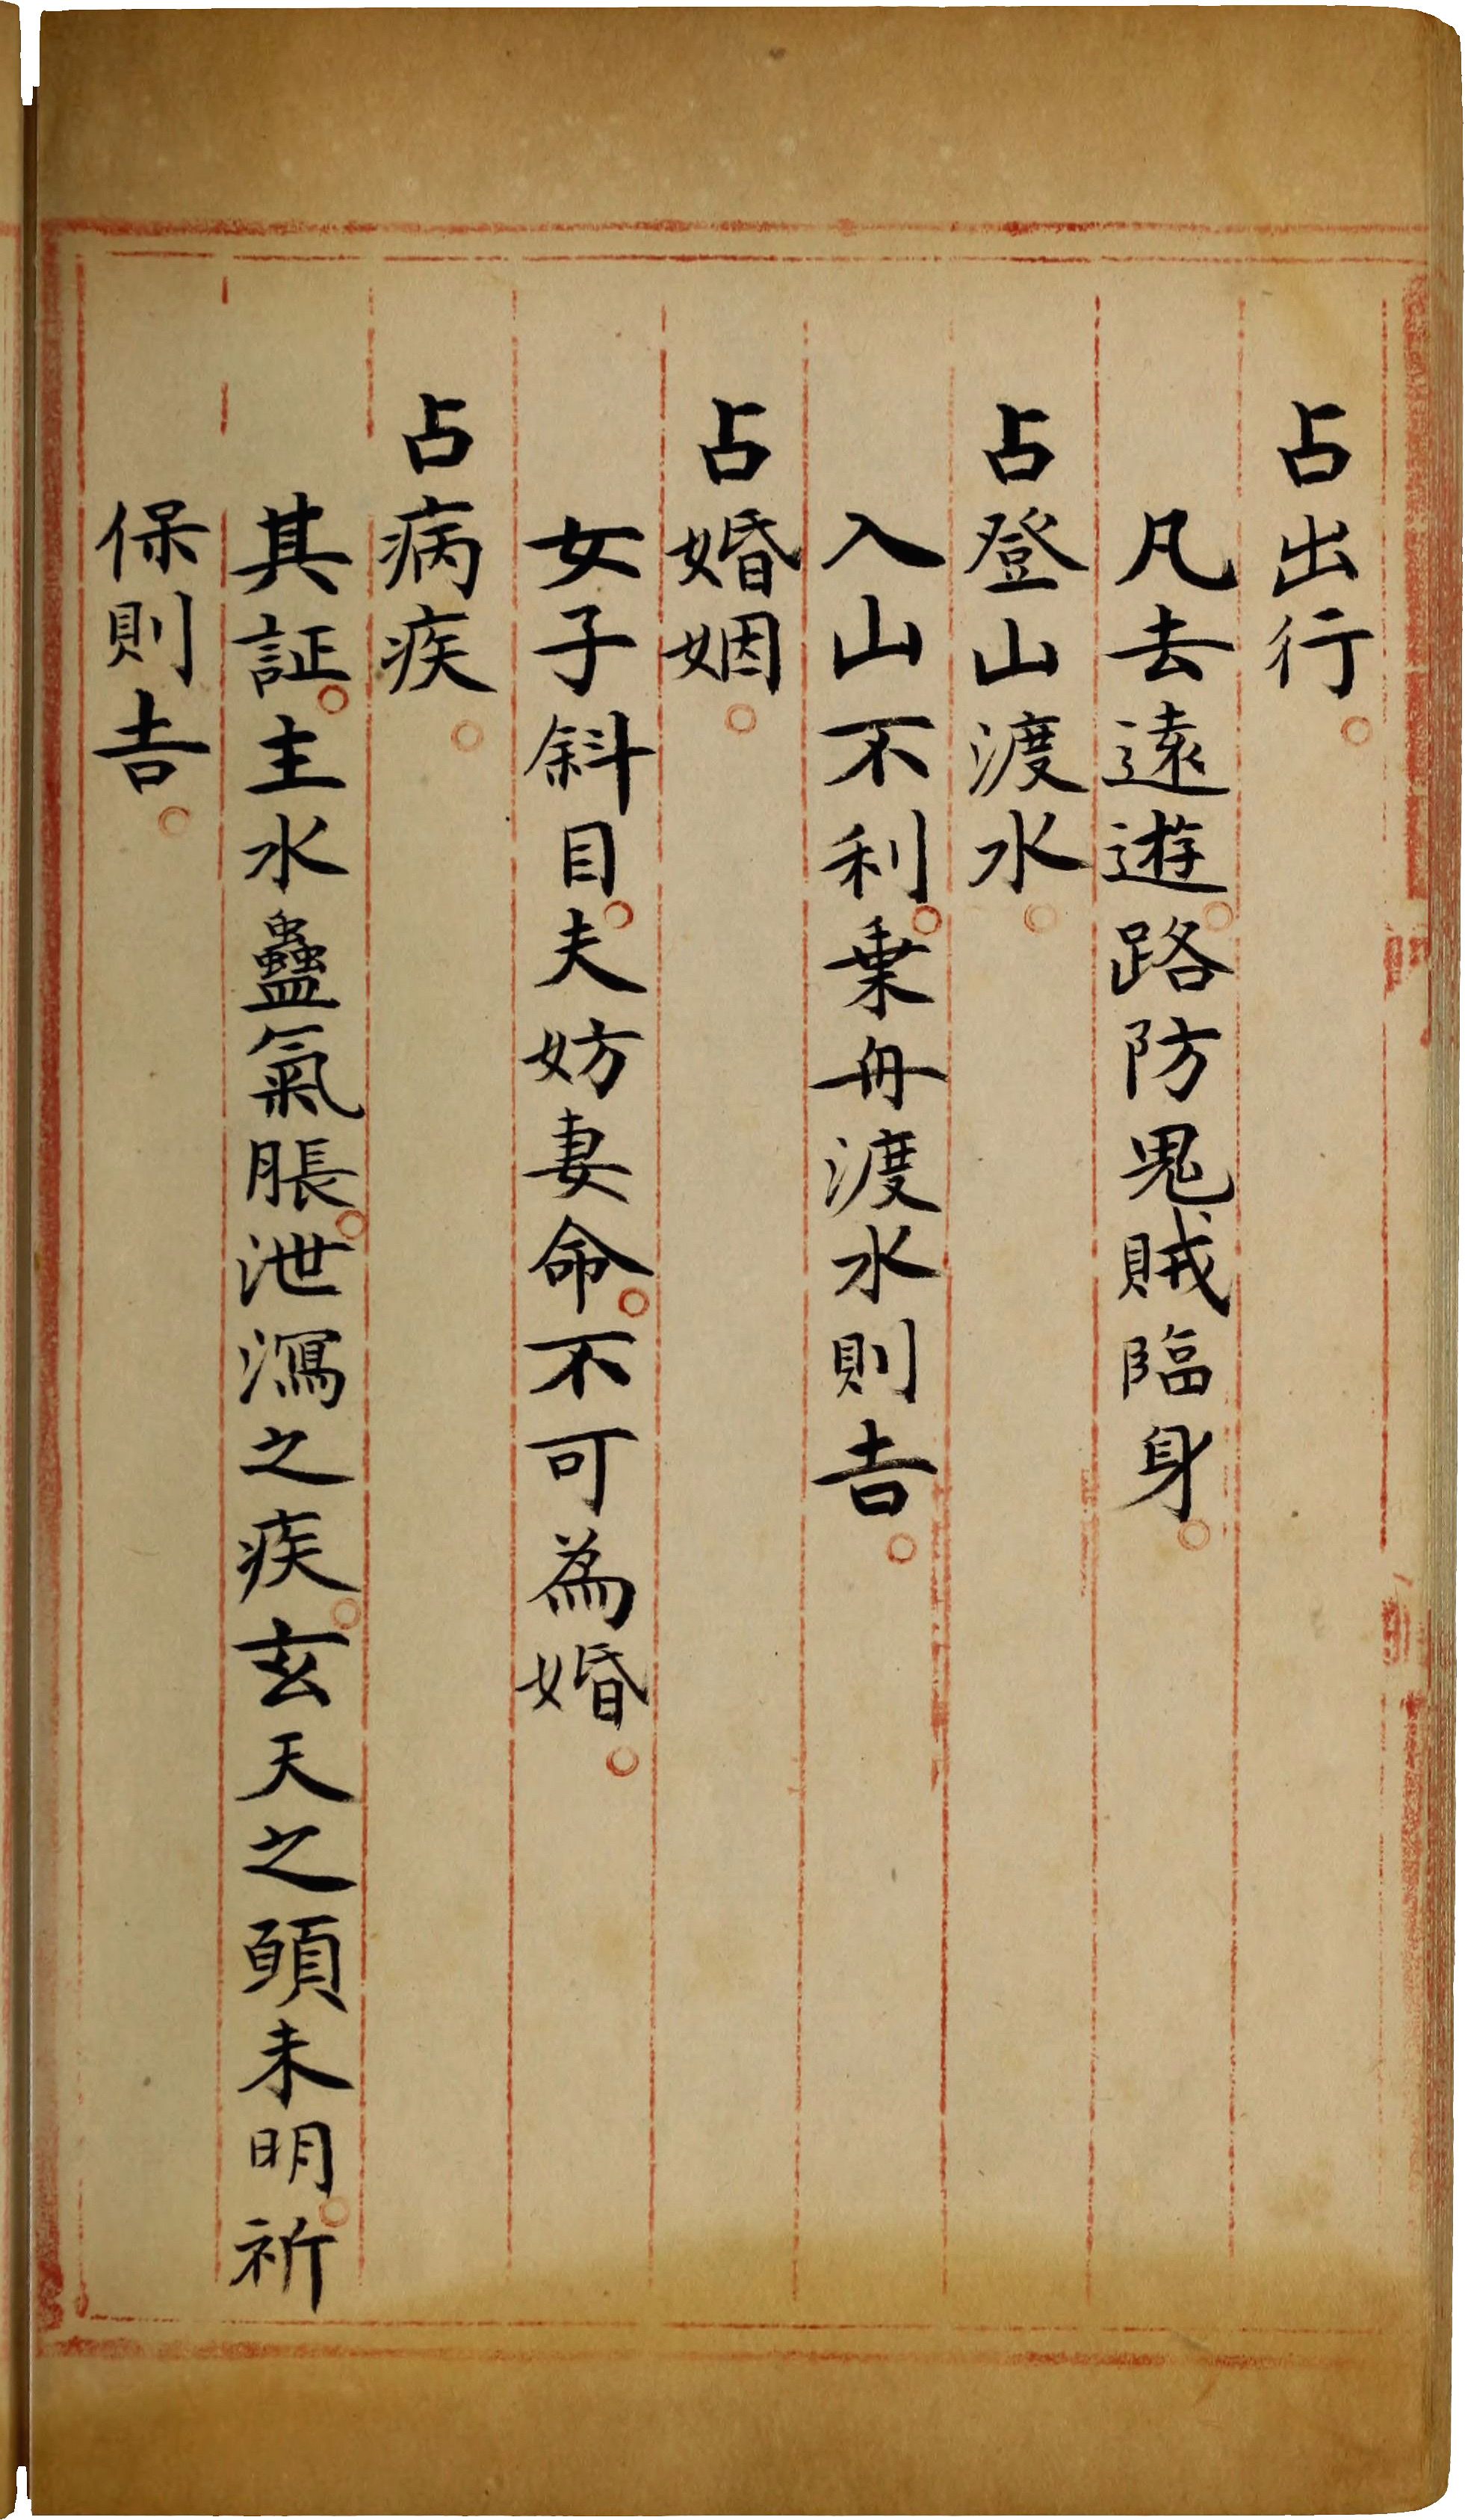 占出行。
凡去遠遊。路防鬼賊臨身。
占登山渡水。
入山不利。乗舟渡水則吉。
占婚姻。
女子斜目。夫妨妻命。不可為婚。
占病疾。
其証。主水蠱氣脹。泄瀉之疾。玄天之頭未明。祈
保則吉。